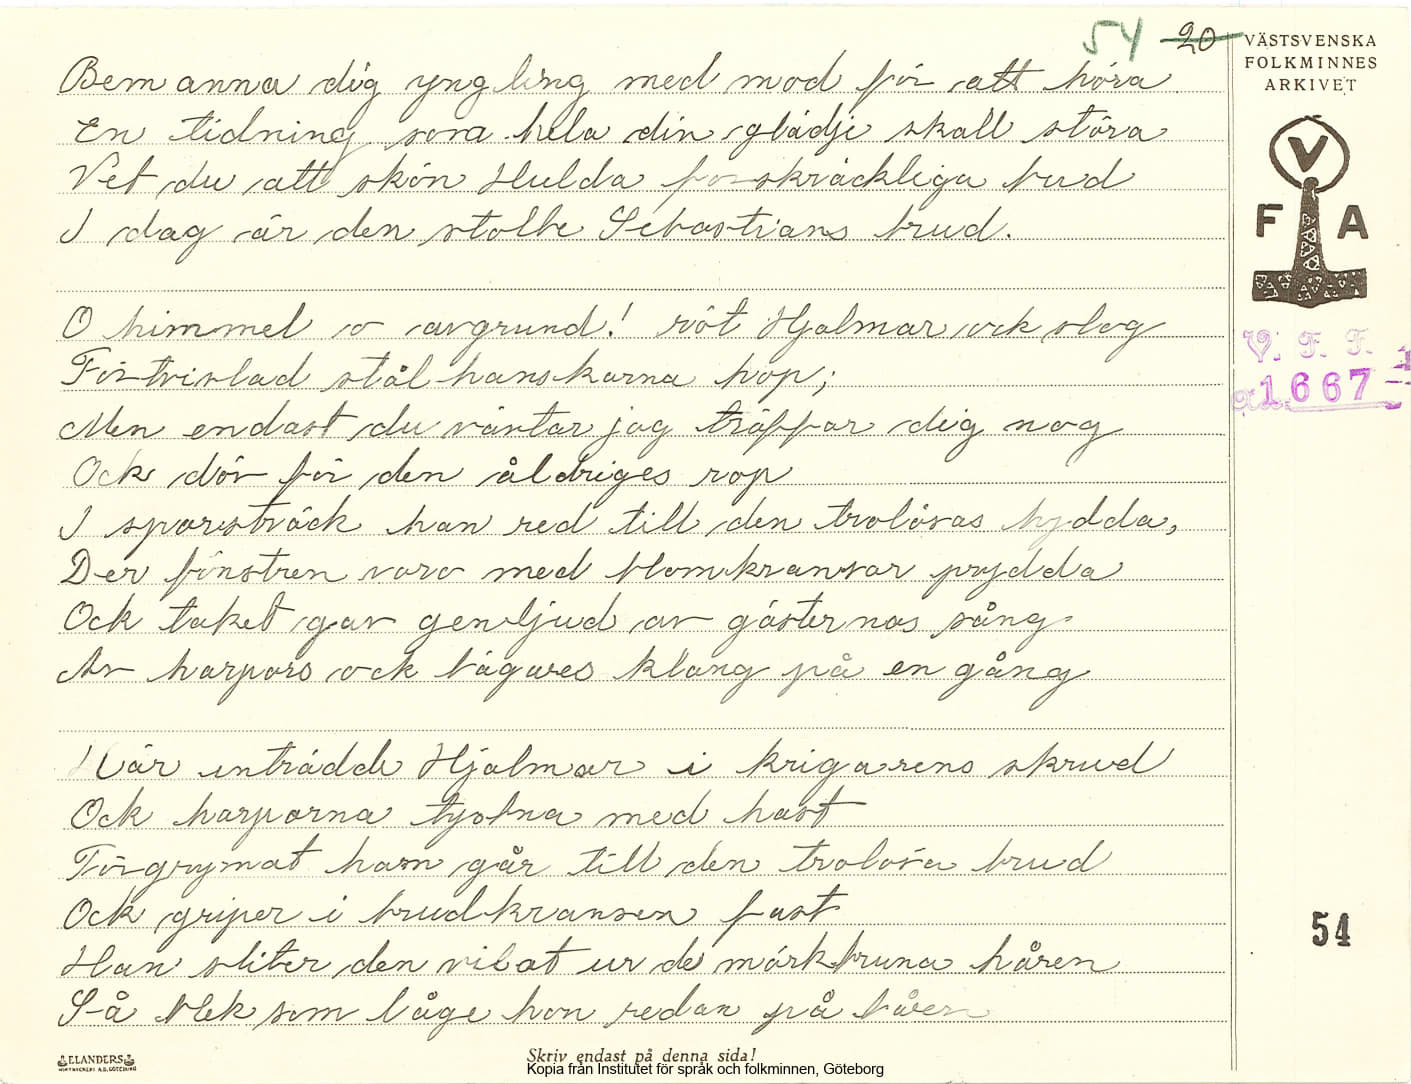 54 20
VÄSTSVENSKA
FOLKMINNES
ARKIVET
V
F A
V. F. F.
1667
Bemanna dig yngling med mod för att höra
En tidning som hela din glädje skall störa
Vet du att skön Hulda förskräckliga bud
I dag är den stolte Sebastians brud.
O himmel o avgrund! röt Hjalmar ock slog
Förtvivlad stålhanskarna hop;
Men endast du väntar jag träffar dig nog
Ock dör för den åldriges rop
I sporrsträck han red till den trolösas hydda,
Der fönstren voro med blomkransar prydda
Ock taket gav genljud av gästernas sång
Av harpors ock bägares klang på en gång
Här inträdde Hjalmar i krigarens skrud
Ock harporna tystna med hast
Förgrymat ham går till den trolösa brud
Ock griper i brudkransen fast
Han sliter den vilat ur de mörkbruna håren
Så blek som låge hon redan på båren
54
ELANDERS
Skriv endast på denna sida!
Kopia från Institutet för språk och folkminnen, Göteborg